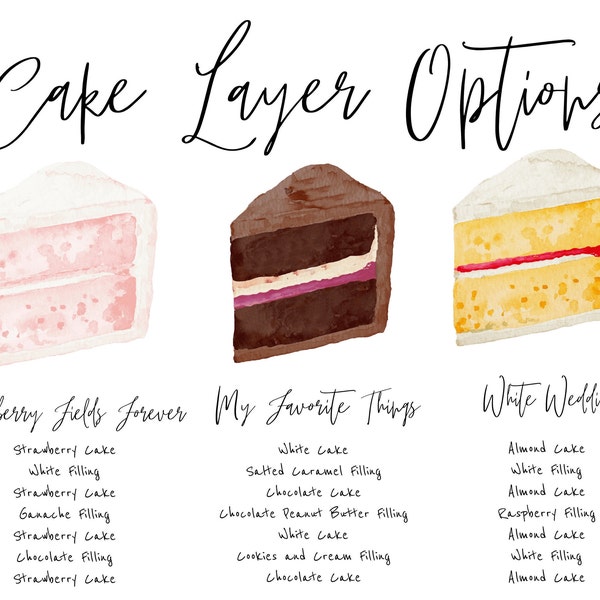 Cake Layer Options
berry Fields Forever
Strawberry Cake
White Filling
Strawberry Cake
Ganache Filling
Strawberry Cake
Chocolate Filling
Strawberry Cake
My Favorite Things
White Cake
Salted Caramel Filling
Chocolate Cake
Chocolate Peanut Butter Filling
White Cake
Cookies and Cream Filling
Chocolate Cake
White Weddin
Almond Cake
White Filling
Almond Cake
Raspberry Filling
Almond Cake
White Filling
Almond Cake